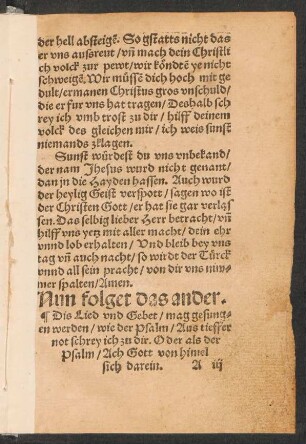 der hell absteigẽ. So gstatts nicht das
er vns ausreut / vñ mach dein Christli
ch volck zur pewt / wir kõndtẽ ye nicht
schweigẽ. Wir müssẽ dich hoch mit ge
dult / ermanen Christus gros vnschuld /
die er fur vns hat tragen / Deshalb sch
rey ich vmb trost zu dir / hülff deinem
volck des gleichen mir / ich weis sunst
niemands zklagen.
Sunst würdest du vns vnbekand /
der nam Jhesus wurd nicht genant /
dan jn die Hayden hassen. Auch wurd
der heylig Geist verspott / sagen wo ist
der Christen Gott / er hat sie gar verlas
sen. Das selbig lieber Herr betracht / vñ
hilff vns yetz mit aller macht / dein ehr
vnnd lob erhalten / Vnd bleib bey vns
tag vñ auch nacht / so wirdt der Türck
vnnd all sein pracht / von dir vns nim-
mer spalten / Amen.
Nun folget das ander.
¶ Dis Lied vnd Gebet / mag gesung-
en werden / wie der Psalm / Aus tieffer
not schrey ich zu dir. Oder als der
Psalm / Ach Gott von himel
sich darein. A iij